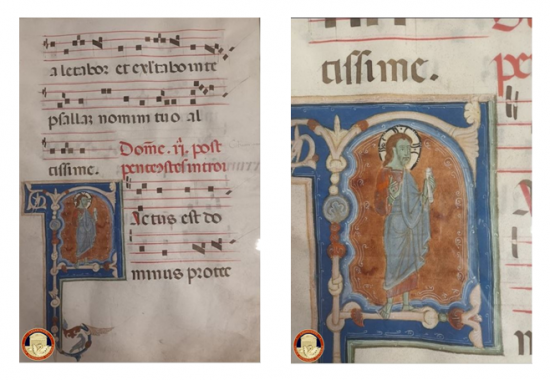 a letabor et exltabo in te
psallaz nomini tuo al
tissime. Domē. ij. post
pentecostes introi
Actus est do
minus protec
tissime.
pe